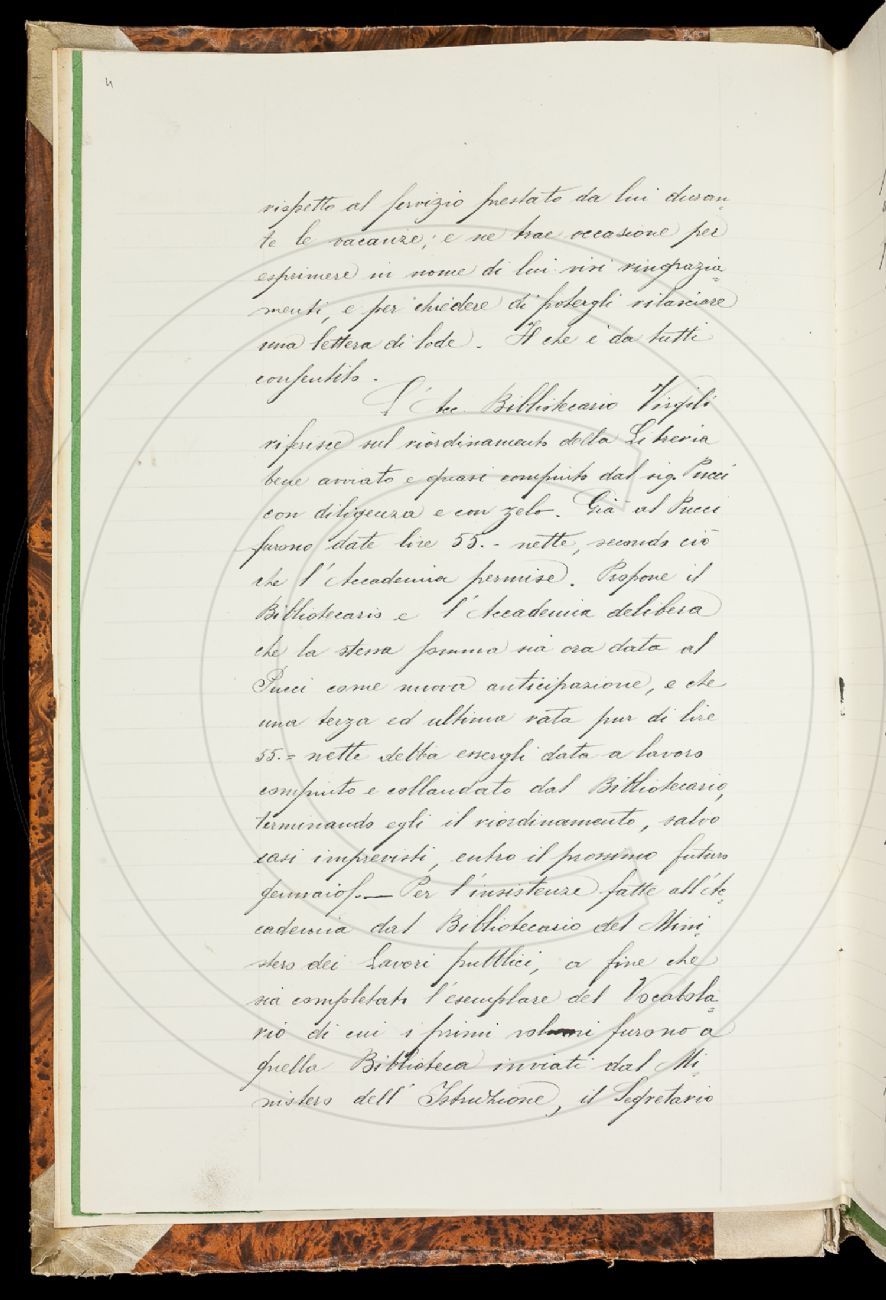 4
rispetto al servizio prestato da lui duran=
te le vacanze; e ne trae occasione per
esprimere in nome di lui vivi ringrazia=
menti, e per chiedere di potergli rilasciare
una lettera di lode. Il che è da tutti
consentito.
L'Acc. Bibliotecario Virgili
riferisce sul riordinamento della Libreria
bene avviato e quasi compiuto dal sig. Pucci
con diligenza e con zelo. Già al Pucci
furono date lire 55.= nette, secondo ciò
che l'Accademia permise. Propone il
Bibliotecario e l'Accademia delibera
che la stessa somma sia ora data al
Pucci come nuova anticipazione, e che
una terza ed ultima rata pur di lire
55.= nette debba essergli data a lavoro
compiuto e collaudato dal Bibliotecario,
terminando egli il riordinamento, salvo
casi imprevisti, entro il prossimo futuro
gennaio. — Per l'insistenze fatte all'Ac=
cademia dal Bibliotecario del Mini=
stero dei Lavori pubblici, a fine che
sia completato l'esemplare del Vocabola=
rio di cui i primi volumi furono a
quella Biblioteca inviati dal Mi=
nistero dell'Istruzione, il Segretario